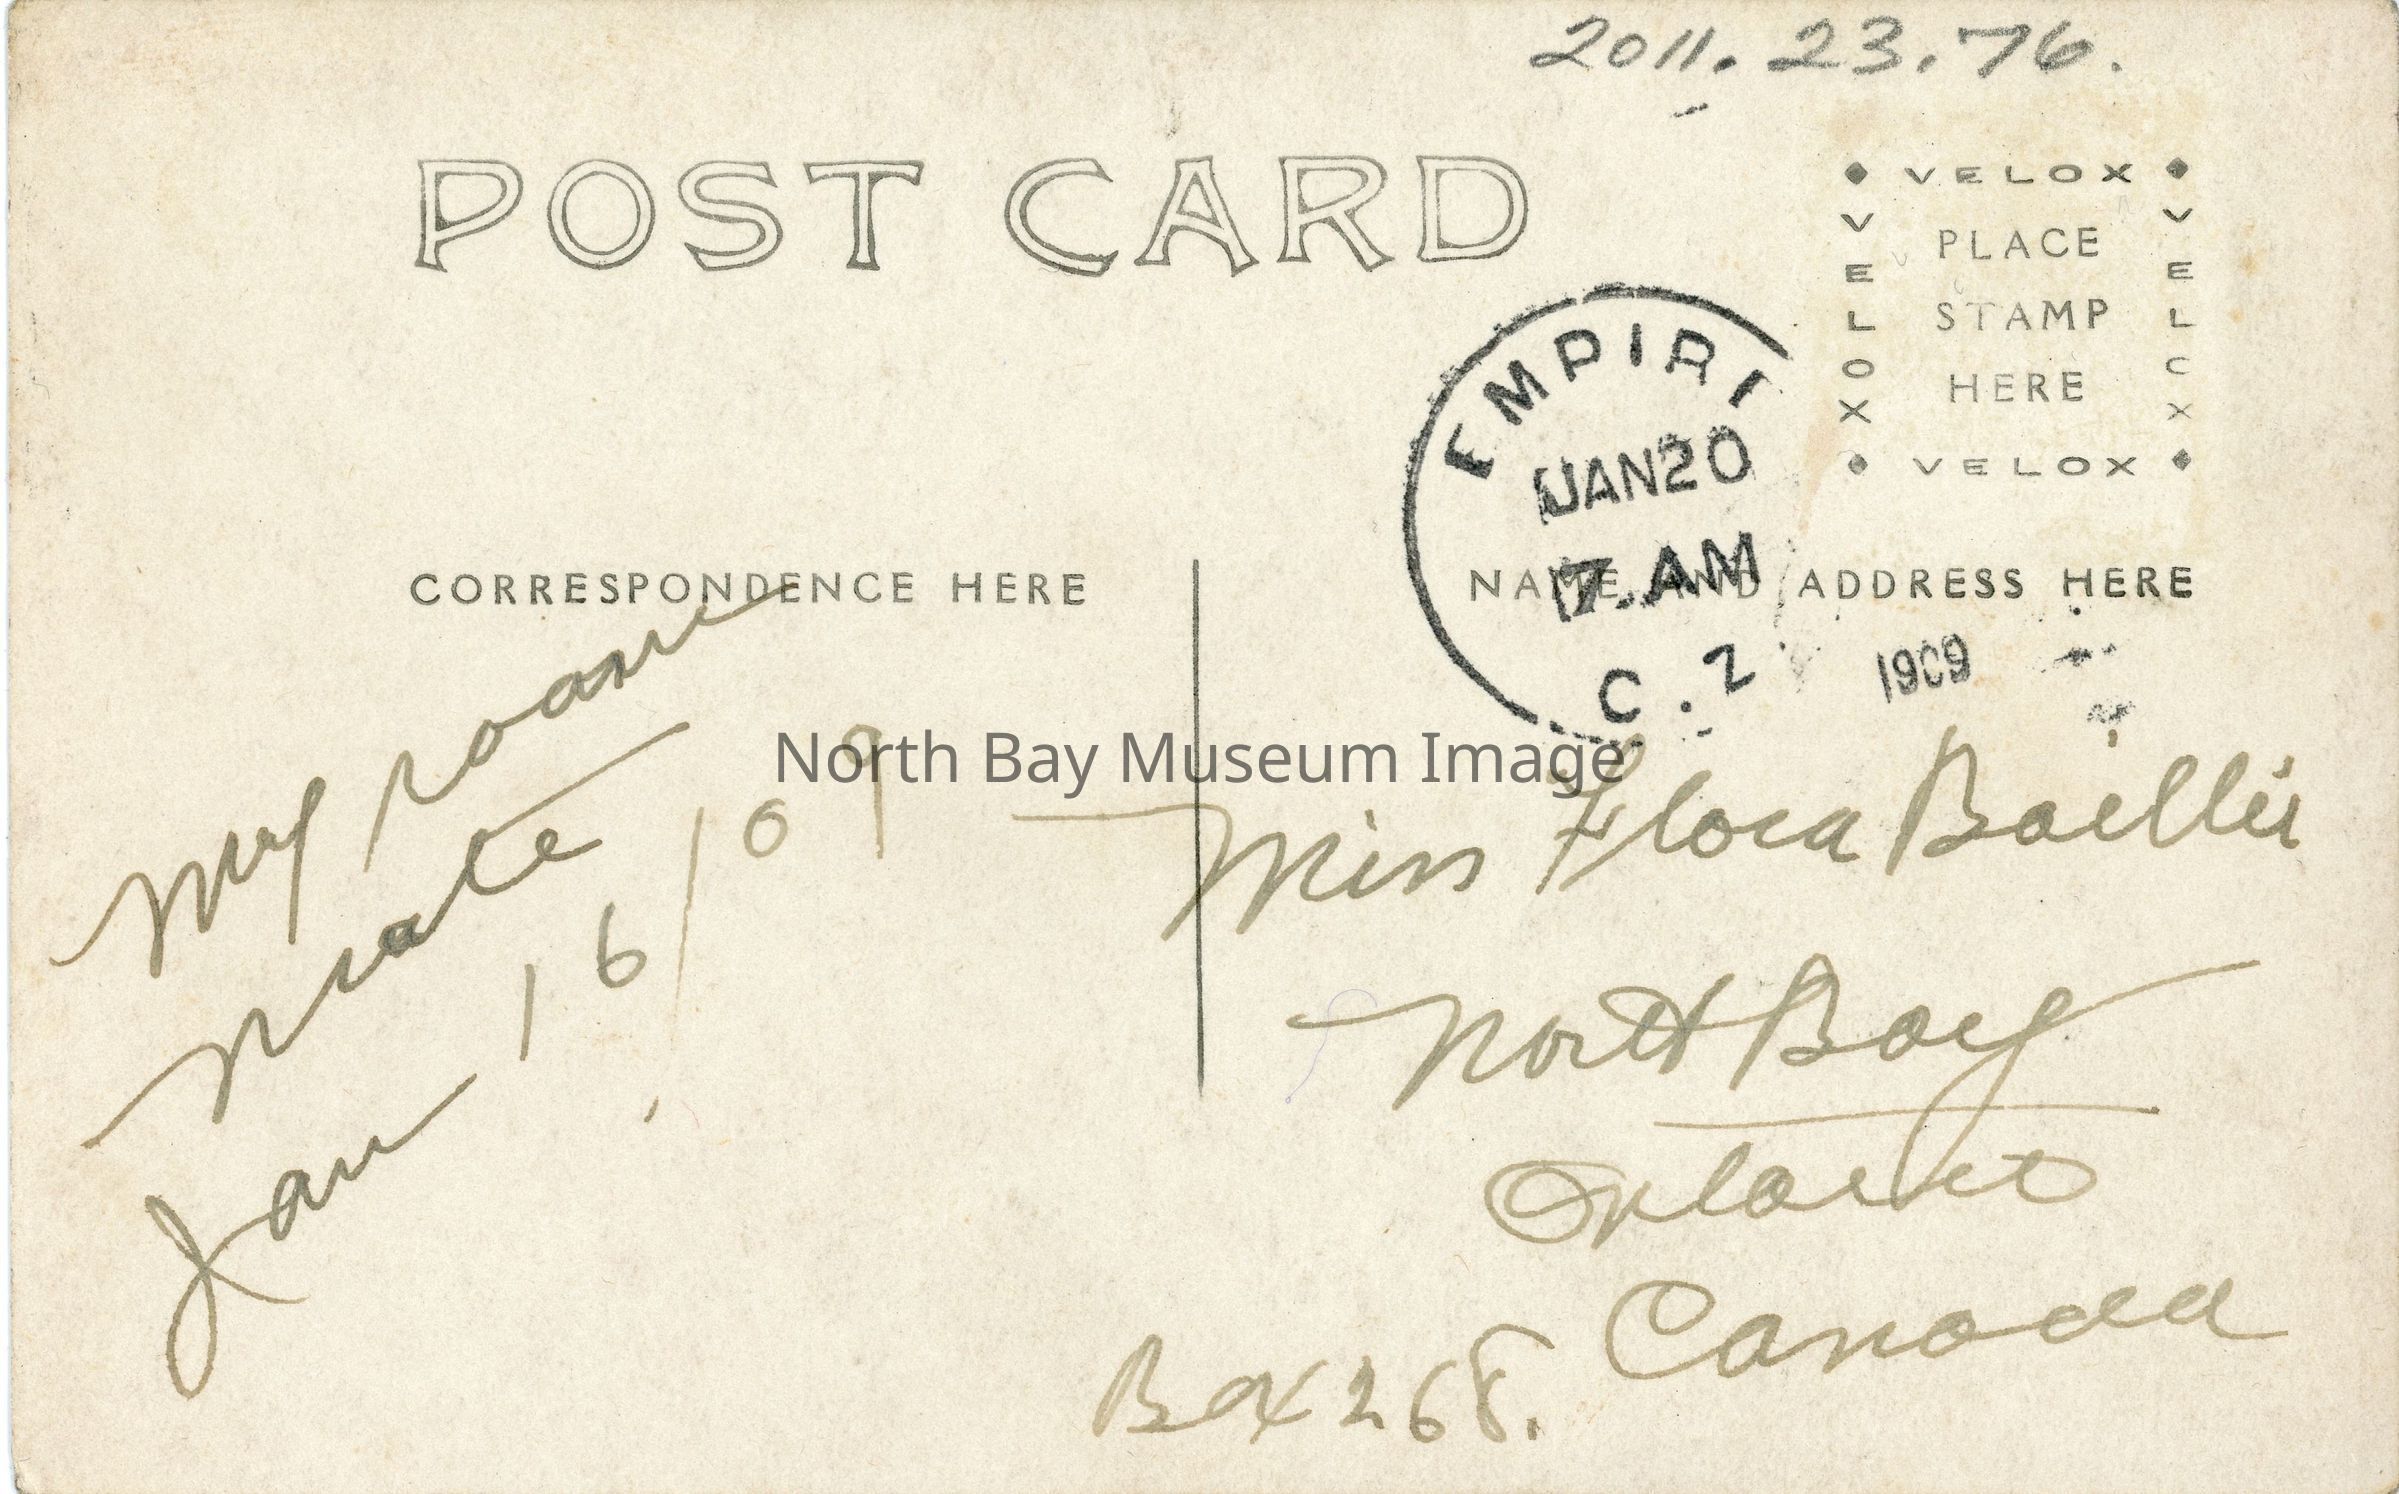 2011.23.76.
POST CARD
VELOX
VELOX
PLACE
STAMP
HERE
VELOX
VELOX
EMPIRE
JAN 20
7. AM
C. Z
1909
CORRESPONDENCE HERE
NAME AND ADDRESS HERE
My room
mate
Jan 16/09
North Bay Museum Image
Miss Flora
North Bay
Ontario
Canada
Box 268.